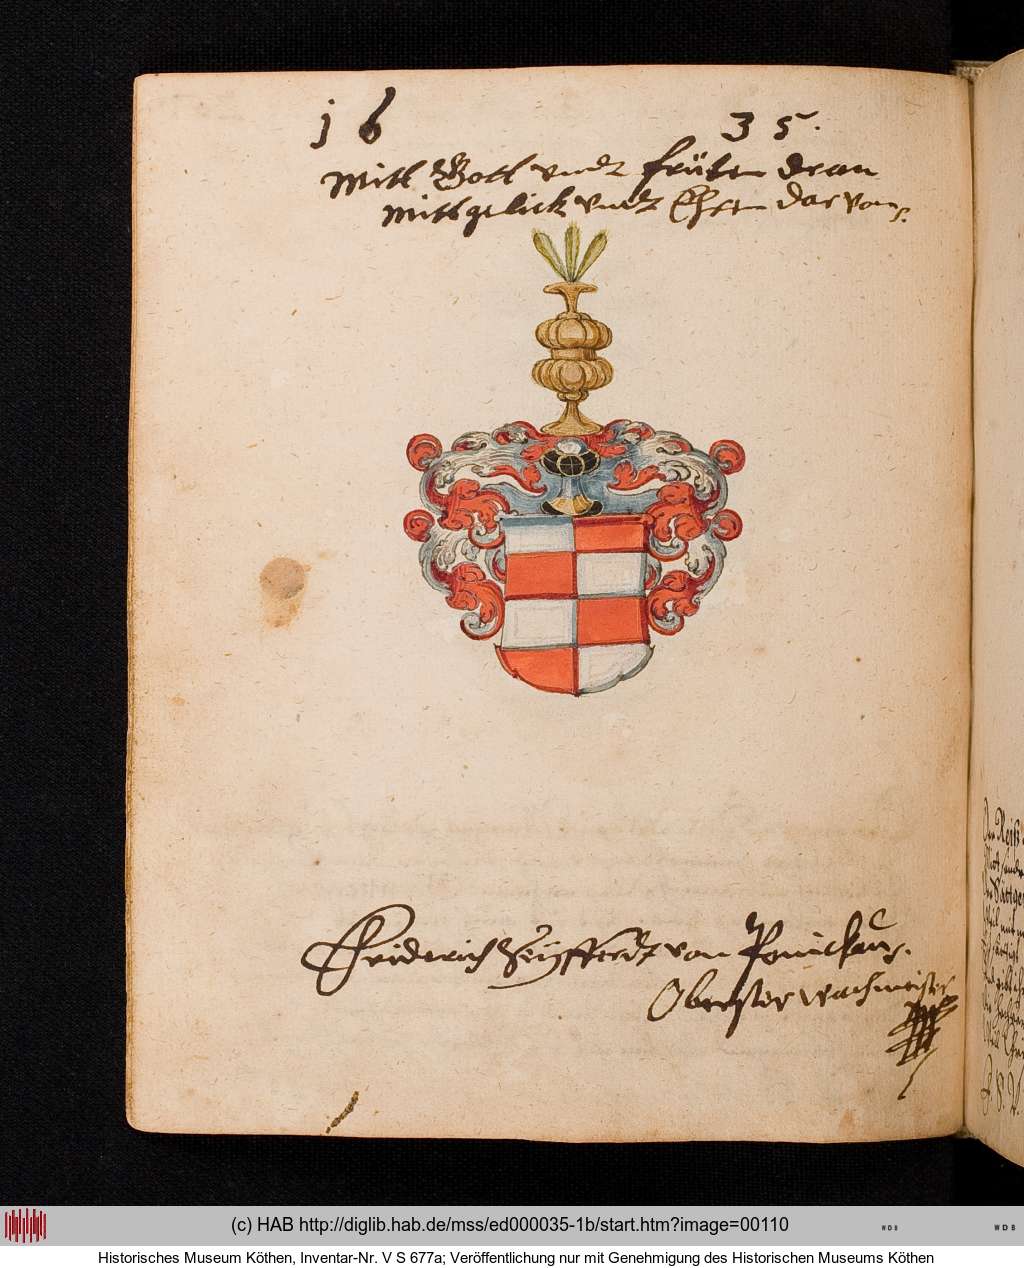 16 35.
Mitt Gott undt früter dran
Mitt gelick undt Ehren darvon.
Friderich Seyfferdt von Ponickau.
Oberster wachmeister
(c) HAB http://diglib.hab.de/mss/ed000035-1b/start.htm?image=00110
WDB
WDB
Historisches Museum Köthen, Inventar-Nr. V S 677a; Veröffentlichung nur mit Genehmigung des Historischen Museums Köthen